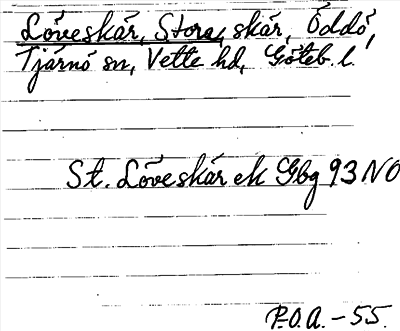 Löveskär, Stora, skär, Öddö,
Tjärnö sn, Vette hd, Göteb. l.
St. Löveskär ek Gbg 93 NO
P.O.A. - 55.